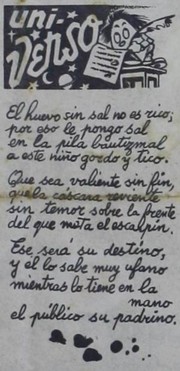 uni-
VERSO
El huevo sin sal no es rico,
por eso le pongo sal
en la pila bautizmal
a este niño gordo y tico.
Que sea valiente sin fin,
que la cáscara reviente
sin temor sobre la frente
del que meta el escarpín.
Ese será su destino,
y él lo sabe muy ufano
mientras lo tiene en la
mano
el público su padrino.